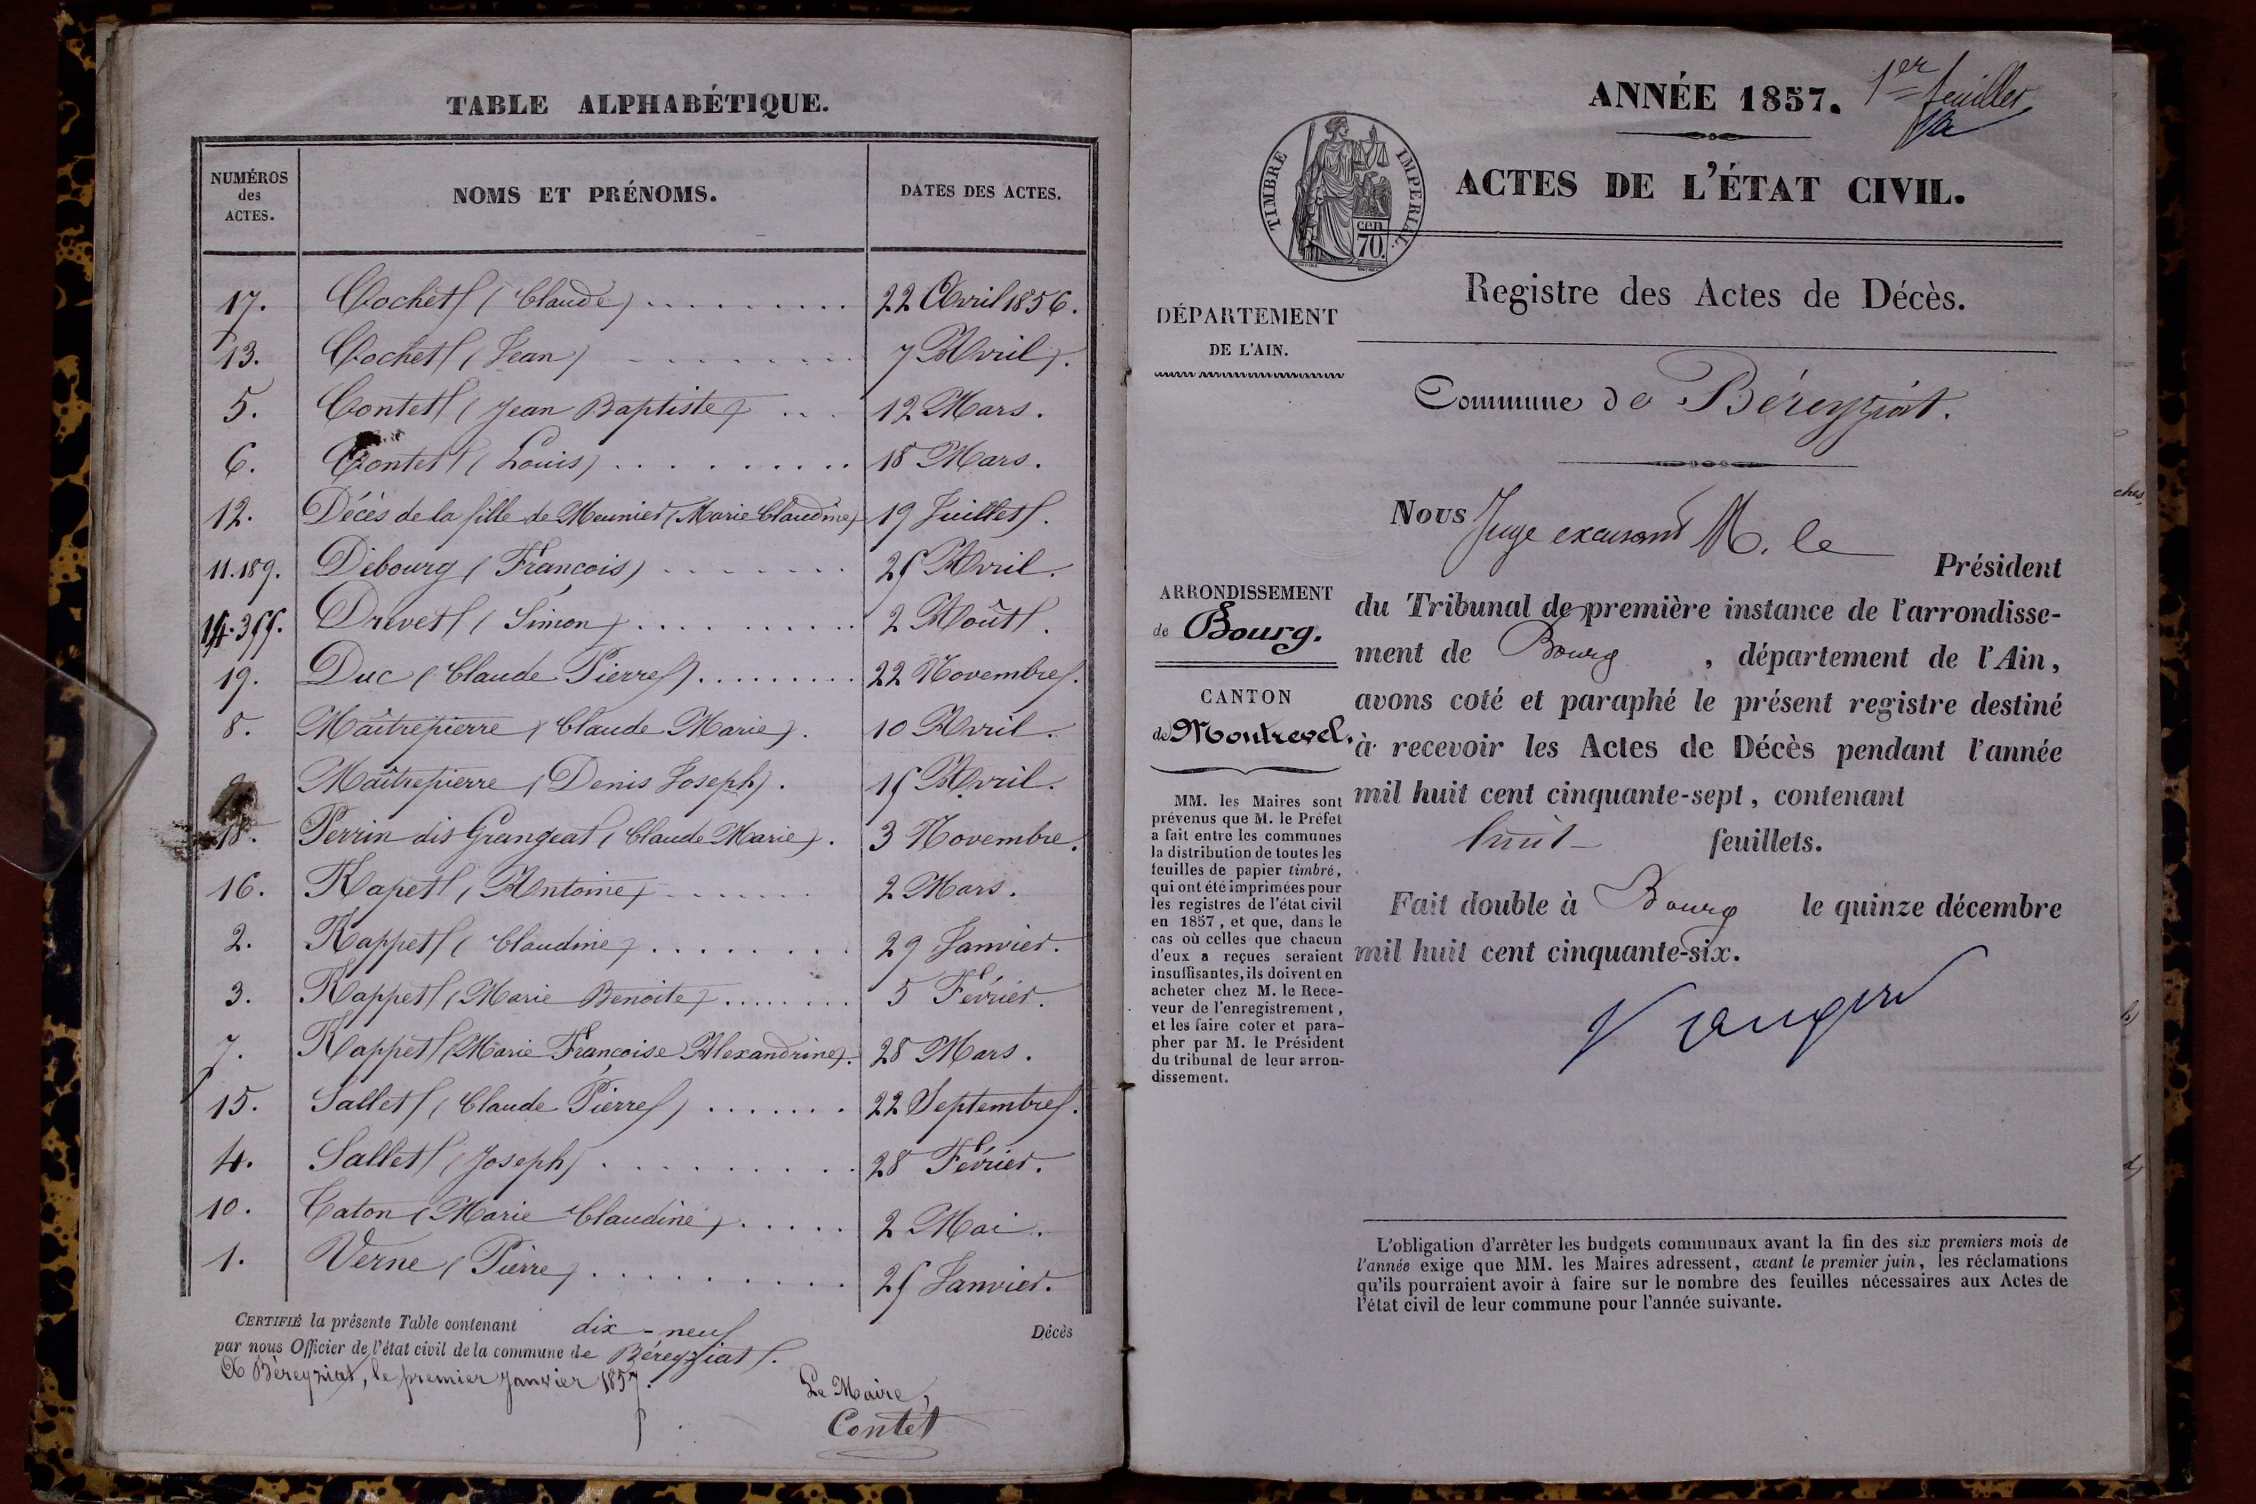 TABLE ALPHABÉTIQUE.
NUMÉROS
des
ACTES.
NOMS ET PRÉNOMS.
DATES DES ACTES.
17. Cochet (Claude) . . . . . . . . . 22 Avril 1856.
13. Cochet (Jean) - - - - - - - - 7 Avril.
5. Contet (Jean Baptiste) . . . 12 Mars.
6. Contet (Louis) . . . . . . . . . 18 Mars.
12. Décès de la fille de Meunier (Marie Claudine) 19 Juillet.
11. 189. Debourg (François) - - - - - - - 25 Avril.
14. 355. Drevet (Simon) . . . . . . . . . 2 Août.
19. Duc (Claude Pierre) . . . . . . . . . 22 Novembre.
8. Maîtrepierre (Claude Marie) . 10 Avril.
Maîtrepierre (Denis Joseph) . 15 Avril.
18. Perrin dis Grangeat (Claude Marie) . 3 Novembre.
16. Rapet (Antoine) - - - - - - - 2 Mars.
2. Rappet (Claudine) . . . . . . . . . 29 Janvier.
3. Rappet (Marie Benoite) . . . . . . . . 5 Février.
7. Rappet (Marie Françoise Alexandrine). 28 Mars.
15. Sallet (Claude Pierre) . . . . . . . 22 Septembre.
4. Sallet (Joseph) . . . . . . . . . . 28 Février.
10. Caton (Marie Claudine) . . . . . 2 Mai.
1. Verne (Pierre) . . . . . . . . . . 25 Janvier.
CERTIFIÉ la présente Table contenant dix-neuf Décès
par nous Officier de l'état civil de la commune de Béreyziat.
A Béreyziat, le premier janvier 1857.
Le Maire,
Contet
ANNÉE 1857.
1er feuillet
TIMBRE IMPERIAL
cen
70.
ACTES DE L'ÉTAT CIVIL.
Registre des Actes de Décès.
DÉPARTEMENT
DE L'AIN.
Commune de Béreyziat.
Nous Juge excusant M. le Président
du Tribunal de première instance de l'arrondisse-
ment de Bourg , département de l'Ain,
avons coté et paraphé le présent registre destiné
à recevoir les Actes de Décès pendant l'année
mil huit cent cinquante-sept, contenant
huit feuillets.
Fait double à Bourg le quinze décembre
mil huit cent cinquante-six.
ARRONDISSEMENT
de Bourg.
CANTON
de Montrevel.
MM. les Maires sont
prévenus que M. le Préfet
a fait entre les communes
la distribution de toutes les
feuilles de papier timbré,
qui ont été imprimées pour
les registres de l'état civil
en 1857, et que, dans le
cas où celles que chacun
d'eux a reçues seraient
insuffisantes, ils doivent en
acheter chez M. le Rece-
veur de l'enregistrement,
et les faire coter et para-
pher par M. le Président
du tribunal de leur arron-
dissement.
L'obligation d'arrêter les budgets communaux avant la fin des six premiers mois de
l'année exige que MM. les Maires adressent, avant le premier juin, les réclamations
qu'ils pourraient avoir à faire sur le nombre des feuilles nécessaires aux Actes de
l'état civil de leur commune pour l'année suivante.